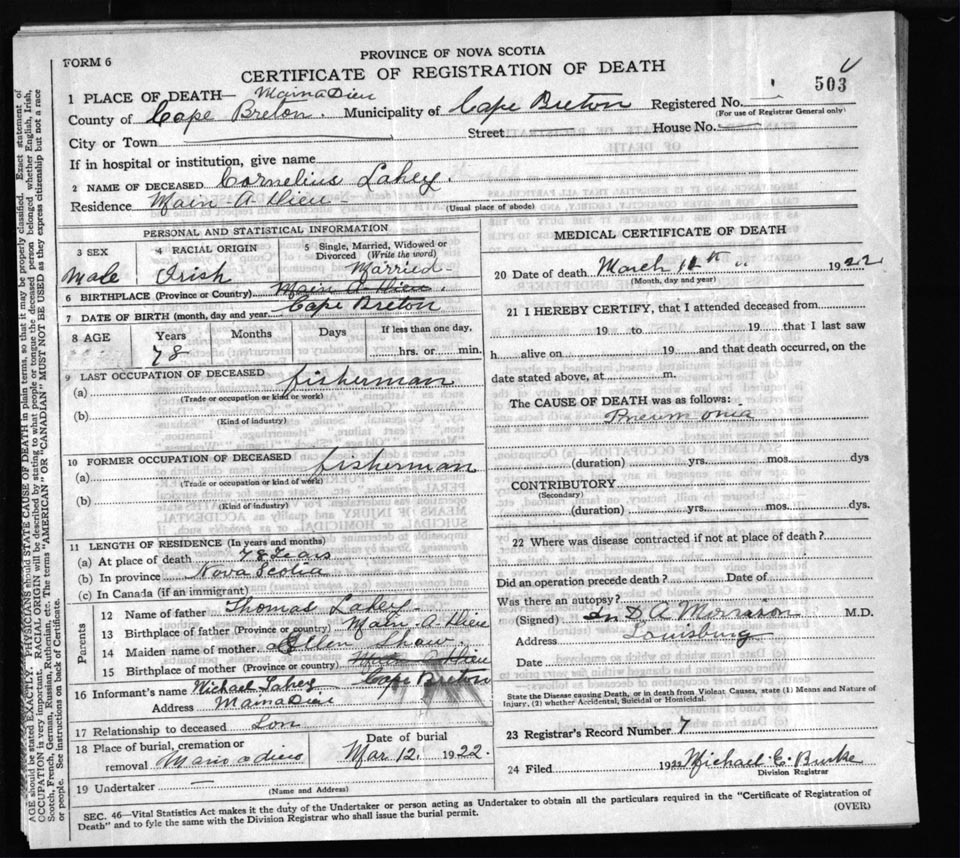 FORM 6
PROVINCE OF NOVA SCOTIA
CERTIFICATE OF REGISTRATION OF DEATH
503
1 PLACE OF DEATH— Mainadieu
County of Cape Breton. Municipality of Cape Breton Registered No.
(For use of Registrar General only)
City or Town Street House No.
If in hospital or institution, give name
2 NAME OF DECEASED Cornelius Lahey.
Residence Main-A-Dieu-
(Usual place of abode)
PERSONAL AND STATISTICAL INFORMATION
3 SEX 4 RACIAL ORIGIN 5 Single, Married, Widowed or Divorced (Write the word)
Male Irish Married-
6 BIRTHPLACE (Province or Country) Main A-Dieu.
Cape Breton
7 DATE OF BIRTH (month, day and year)
8 AGE Years Months Days If less than one day,
78 hrs. or min.
9 LAST OCCUPATION OF DECEASED
(a) fisherman
(Trade or occupation or kind or work)
(b)
(Kind of industry)
10 FORMER OCCUPATION OF DECEASED
(a) fisherman
(Trade or occupation or kind of work)
(b)
(Kind of industry)
11 LENGTH OF RESIDENCE (In years and months)
(a) At place of death 78 Years
(b) In province Nova Scotia
(c) In Canada (if an immigrant)
Parents
12 Name of father Thomas Lahey-
13 Birthplace of father (Province or country) Main-A-Dieu
14 Maiden name of mother Shaw.
15 Birthplace of mother (Province or country) Main A Dieu
Cape Breton
16 Informant's name Michael Lahey
Address Mainadieu
17 Relationship to deceased Son
18 Place of burial, cremation or removal Main a dieu Date of burial Mar 12, 1922.
19 Undertaker
(Name and Address)
MEDICAL CERTIFICATE OF DEATH
20 Date of death March 1922
(Month, day and year)
21 I HEREBY CERTIFY, that I attended deceased from
19 to 19 that I last saw
h alive on 19 and that death occurred, on the
date stated above, at m.
The CAUSE OF DEATH was as follows:
Pneumonia
(duration) yrs. mos. dys
CONTRIBUTORY
(Secondary)
(duration) yrs. mos. dys.
22 Where was disease contracted if not at place of death?
Did an operation precede death? Date of
Was there an autopsy?
(Signed) D A Morrison M.D.
Address Louisburg
Date
State the Disease causing Death, or in death from Violent Causes, state (1) Means and Nature of
Injury, (2) whether Accidental, Suicidal or Homicidal.
23 Registrar's Record Number 7
24 Filed 192 Michael C. Burke
Division Registrar
SEC. 46—Vital Statistics Act makes it the duty of the Undertaker or person acting as Undertaker to obtain all the particulars required in the "Certificate of Registration of
Death" and to fyle the same with the Division Registrar who shall issue the burial permit.
(OVER)
AGE should be stated EXACTLY. PHYSICIANS should STATE CAUSE OF DEATH in plain terms, so that it may be properly classified. Exact statement of
OCCUPATION is very important. RACIAL ORIGIN will be described by stating to what people or tongue the deceased person belonged whether English, Irish,
Scotch, French, German, Russian, Ruthenian, etc. The terms "AMERICAN" OR "CANADIAN" MUST NOT BE USED as they express citizenship but not a race
or people. See instructions on back of Certificate.